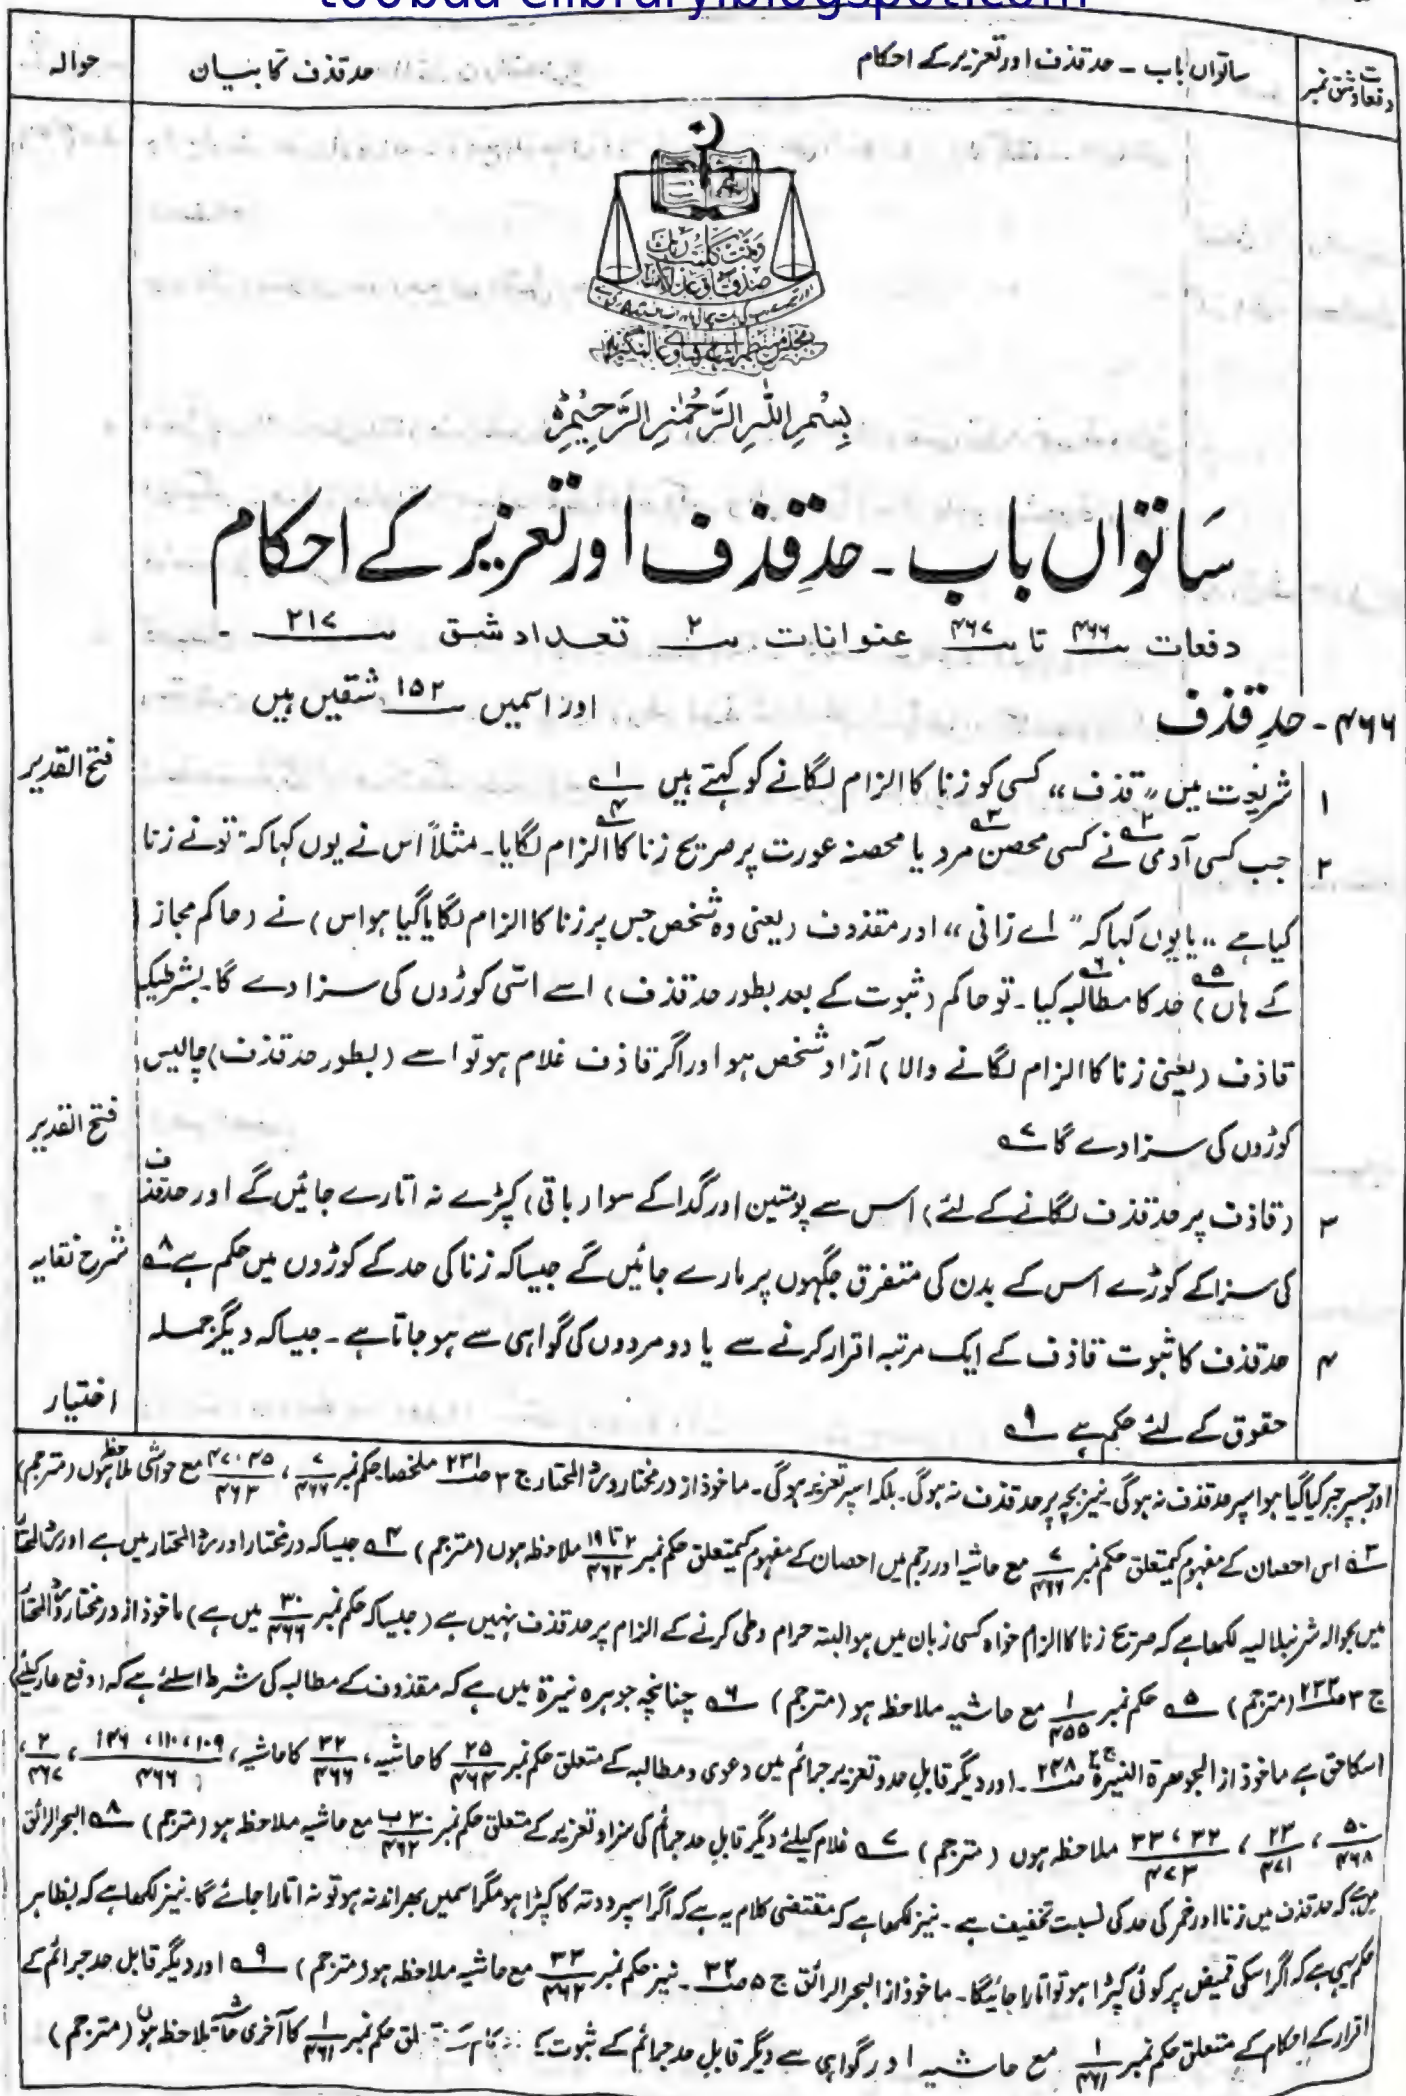 toobaa-elibrary.blogspot.com
دفعات و شق نمبر
ساتواں باب ۔ حد قذف اور تعزیر کے احکام
حد قذف کا بیان
حوالہ
وتمت کلمت ربک
صدقا وعدلا
بسم اللہ الرحمٰن الرحیم
ساتواں باب ۔ حدِ قذف اور تعزیر کے احکام
دفعات ۴۶۶ تا ۴۶۷ عنوانات ۲ تعداد شق ۲۱۷ ۔
۴۶۶ ۔ حدِ قذف
اور اسمیں ۱۵۲ شقیں ہیں
۱ شریعت میں ”قذف“ کسی کو زنا کا الزام لگانے کو کہتے ہیں ۱؎
فتح القدیر
۲ جب کسی آدمی ۲؎ نے کسی محصن ۳؎ مرد یا محصنہ عورت پر صریح زنا ۴؎ کا الزام لگایا۔ مثلاً اس نے یوں کہا کہ ”تو نے زنا
کیا ہے“ یا یوں کہا کہ ”اے زانی“ اور مقذوف (یعنی وہ شخص جس پر زنا کا الزام لگایا گیا ہو اس) نے (حاکم مجاز
کے ہاں) ۵؎ حد کا مطالبہ ۶؎ کیا۔ تو حاکم (ثبوت کے بعد بطور حد قذف) اسے اسّی کوڑوں کی سزا دے گا۔ بشرطیکہ
قاذف (یعنی زنا کا الزام لگانے والا) آزاد شخص ہو اور اگر قاذف غلام ہو تو اسے (بطور حد قذف) چالیس
کوڑوں کی سزا دے گا ۷؎
فتح القدیر
۳ (قاذف پر حد قذف لگانے کے لئے) اس سے پوستین اور گدا کے سوا (باقی) کپڑے نہ اتارے جائیں گے اور حد قذف
کی سزا کے کوڑے اس کے بدن کی متفرق جگہوں پر مارے جائیں گے جیسا کہ زنا کی حد کے کوڑوں میں حکم ہے ۸؎
شرح نقایہ
۴ حد قذف کا ثبوت قاذف کے ایک مرتبہ اقرار کرنے سے یا دو مردوں کی گواہی سے ہو جاتا ہے ۔ جیسا کہ دیگر جملہ
حقوق کے لئے حکم ہے ۹؎
اختیار
اور جسپر جبر کیا گیا ہو اسپر حد قذف نہ ہوگی۔ نیز بچہ پر حد قذف نہ ہوگی۔ بلکہ اسپر تعزیر ہوگی۔ ماخوذ از درمختار و رد المحتار ج ۳ ص ۲۳۱ ملخصا، حکم نمبر ۷/۴۶۶، ۴۵،۴۷/۴۶۳ مع حواشی ملاحظہ ہوں (مترجم)
۳؎ اس احصان کے مفہوم کیمتعلق حکم نمبر ۷/۴۶۶ مع حاشیہ اور رجم میں احصان کے مفہوم کیمتعلق حکم نمبر ۲ تا ۱۹/۴۶۲ ملاحظہ ہوں (مترجم) ۴؎ جیسا کہ درمختار اور رد المحتار میں ہے اور رد المحتار
میں بحوالہ شرنبلالیہ لکھا ہے کہ صریح زنا کا الزام خواہ کسی زبان میں ہو البتہ حرام وطی کرنے کے الزام پر حد قذف نہیں ہے (جیسا کہ حکم نمبر ۳۰/۴۶۶ میں ہے) ماخوذ از درمختار و رد المحتار
ج ۳ ص ۲۳۲ (مترجم) ۵؎ حکم نمبر ۱/۴۵۵ مع حاشیہ ملاحظہ ہو (مترجم) ۶؎ چنانچہ جوہرہ نیرۃ میں ہے کہ مقذوف کے مطالبہ کی شرط اسلئے ہے کہ (دفع عار کیلئے)
اسکا حق ہے ماخوذ از الجوھرۃ النیرۃ ج ۲ ص ۲۴۸ ۔ اور دیگر قابل حد و تعزیر جرائم میں دعوی و مطالبہ کے متعلق حکم نمبر ۲۵/۴۶۲ کا حاشیہ، ۳۲/۴۶۶ کا حاشیہ، ۱۰۹، ۱۱۰، ۱۴۶/۴۶۶، ۲/۴۶۷،
۵۰/۴۶۸، ۲۳/۴۷۱، ۳۲، ۳۳/۴۷۳ ملاحظہ ہوں (مترجم) ۷؎ غلام کیلئے دیگر قابل حد جرائم کی سزا و تعزیر کے متعلق حکم نمبر ۳۰ ب/۴۶۲ مع حاشیہ ملاحظہ ہو (مترجم) ۸؎ البحر الرائق
میں ہے کہ حد قذف میں زنا اور خمر کی حد کی نسبت تخفیف ہے ۔ نیز لکھا ہے کہ مقتضی کلام یہ ہے کہ اگر اسپر دو تہ کا کپڑا ہو مگر اسمیں بھراند نہ ہو تو نہ اتارا جائے گا۔ نیز لکھا ہے کہ بظاہر
حکم یہی ہے کہ اگر اسکی قمیض پر کوئی کپڑا ہو تو اتارا جائیگا۔ ماخوذ از البحر الرائق ج ۵ ص ۳۲ ۔ نیز حکم نمبر ۳۳/۴۶۲ مع حاشیہ ملاحظہ ہو (مترجم) ۹؎ اور دیگر قابل حد جرائم کے
اقرار کے احکام کے متعلق حکم نمبر ۱/۴۶۱ مع حاشیہ اور گواہی سے دیگر قابل حد جرائم کے ثبوت کے متعلق حکم نمبر ۱/۴۶۱ کا آخری حاشیہ ملاحظہ ہوں (مترجم)